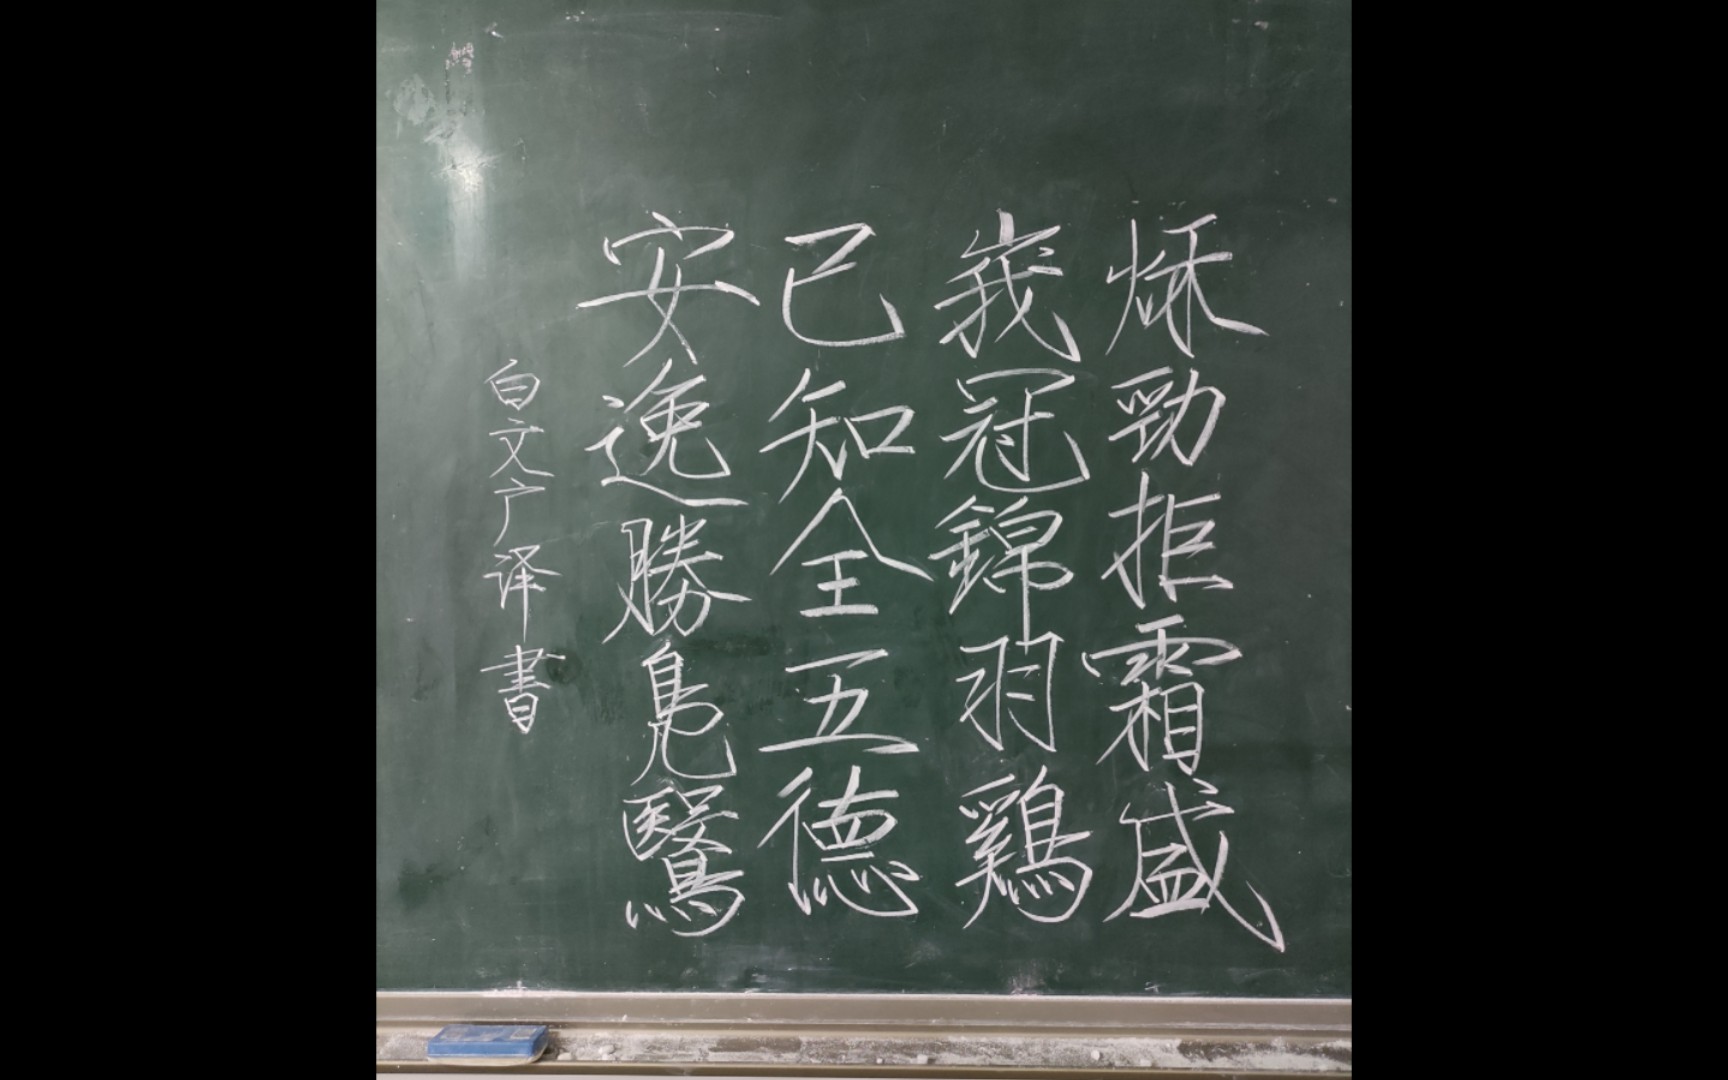 秌勁拒霜盛
峩冠錦羽鷄
已知全五德
安逸勝鳧鷖
白文广译書